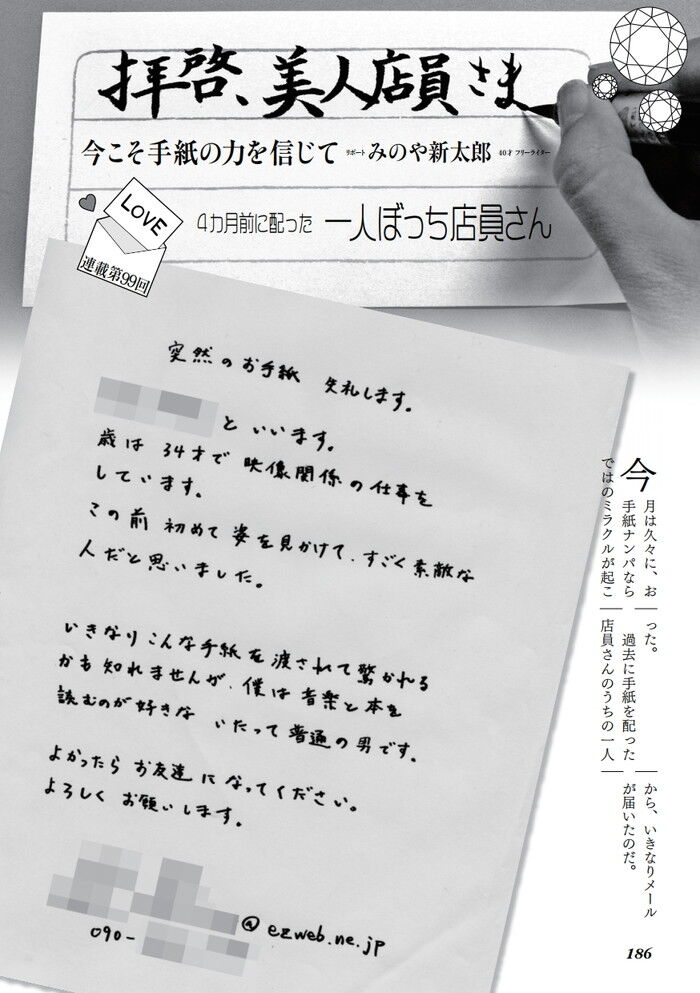 拝啓、美人店員さま
今こそ手紙の力を信じて リポート みのや新太郎 40才 フリーライター
4カ月前に配った 一人ぼっち店員さん
LOVE
連載第99回
突然のお手紙 失礼します。
といいます。
歳は 34才で 映像関係の仕事を
しています。
この前 初めて 姿を見かけて、すごく素敵な
人だと思いました。
いきなりこんな手紙を渡されて驚かれる
かも知れませんが、僕は音楽と本を
読むのが好きな いたって普通の男です。
よかったら お友達になってください。
よろしく お願いします。
@ezweb.ne.jp
090-
今月は久々に、お
手紙ナンパなら
ではのミラクルが起こ
った。
過去に手紙を配った
店員さんのうちの一人
から、いきなりメール
が届いたのだ。
186